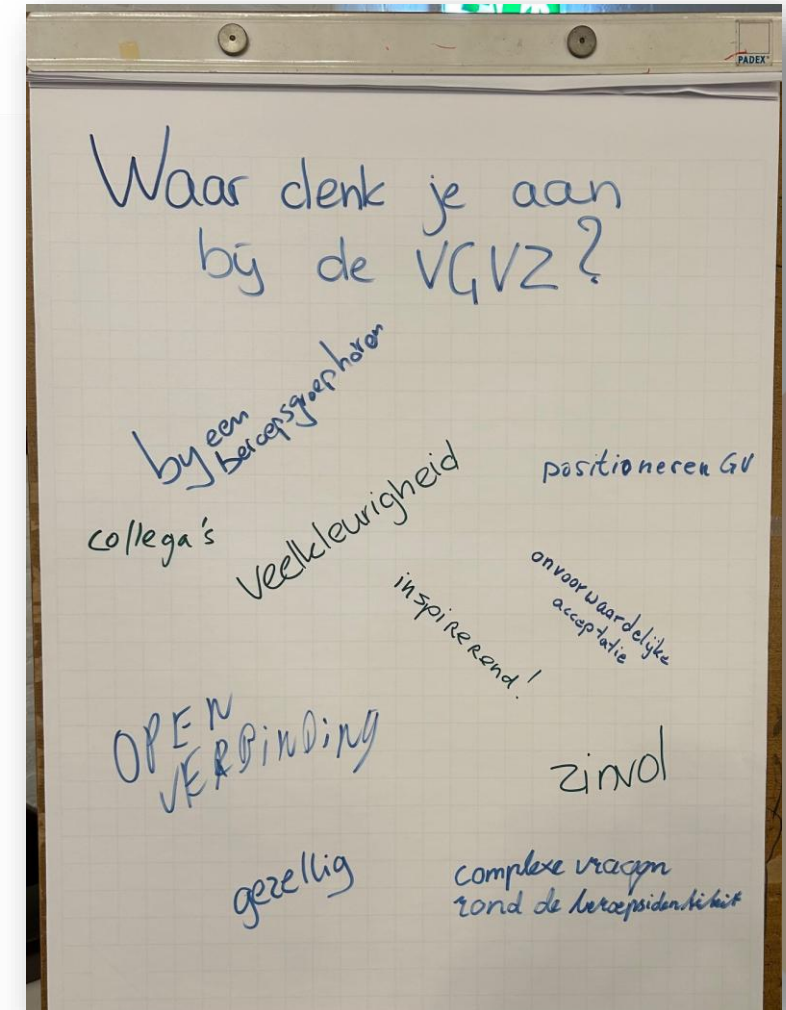 PADEX
Waar denk je aan
bij de VGVZ?
by een
beroepsgroep horen
positioneren GV
collega's
veelkleurigheid
onvoorwaardelijke
acceptatie
inspirerend!
OPEN
VERBINDING
zinvol
gezellig
complexe vragen
rond de beroepsidentiteit